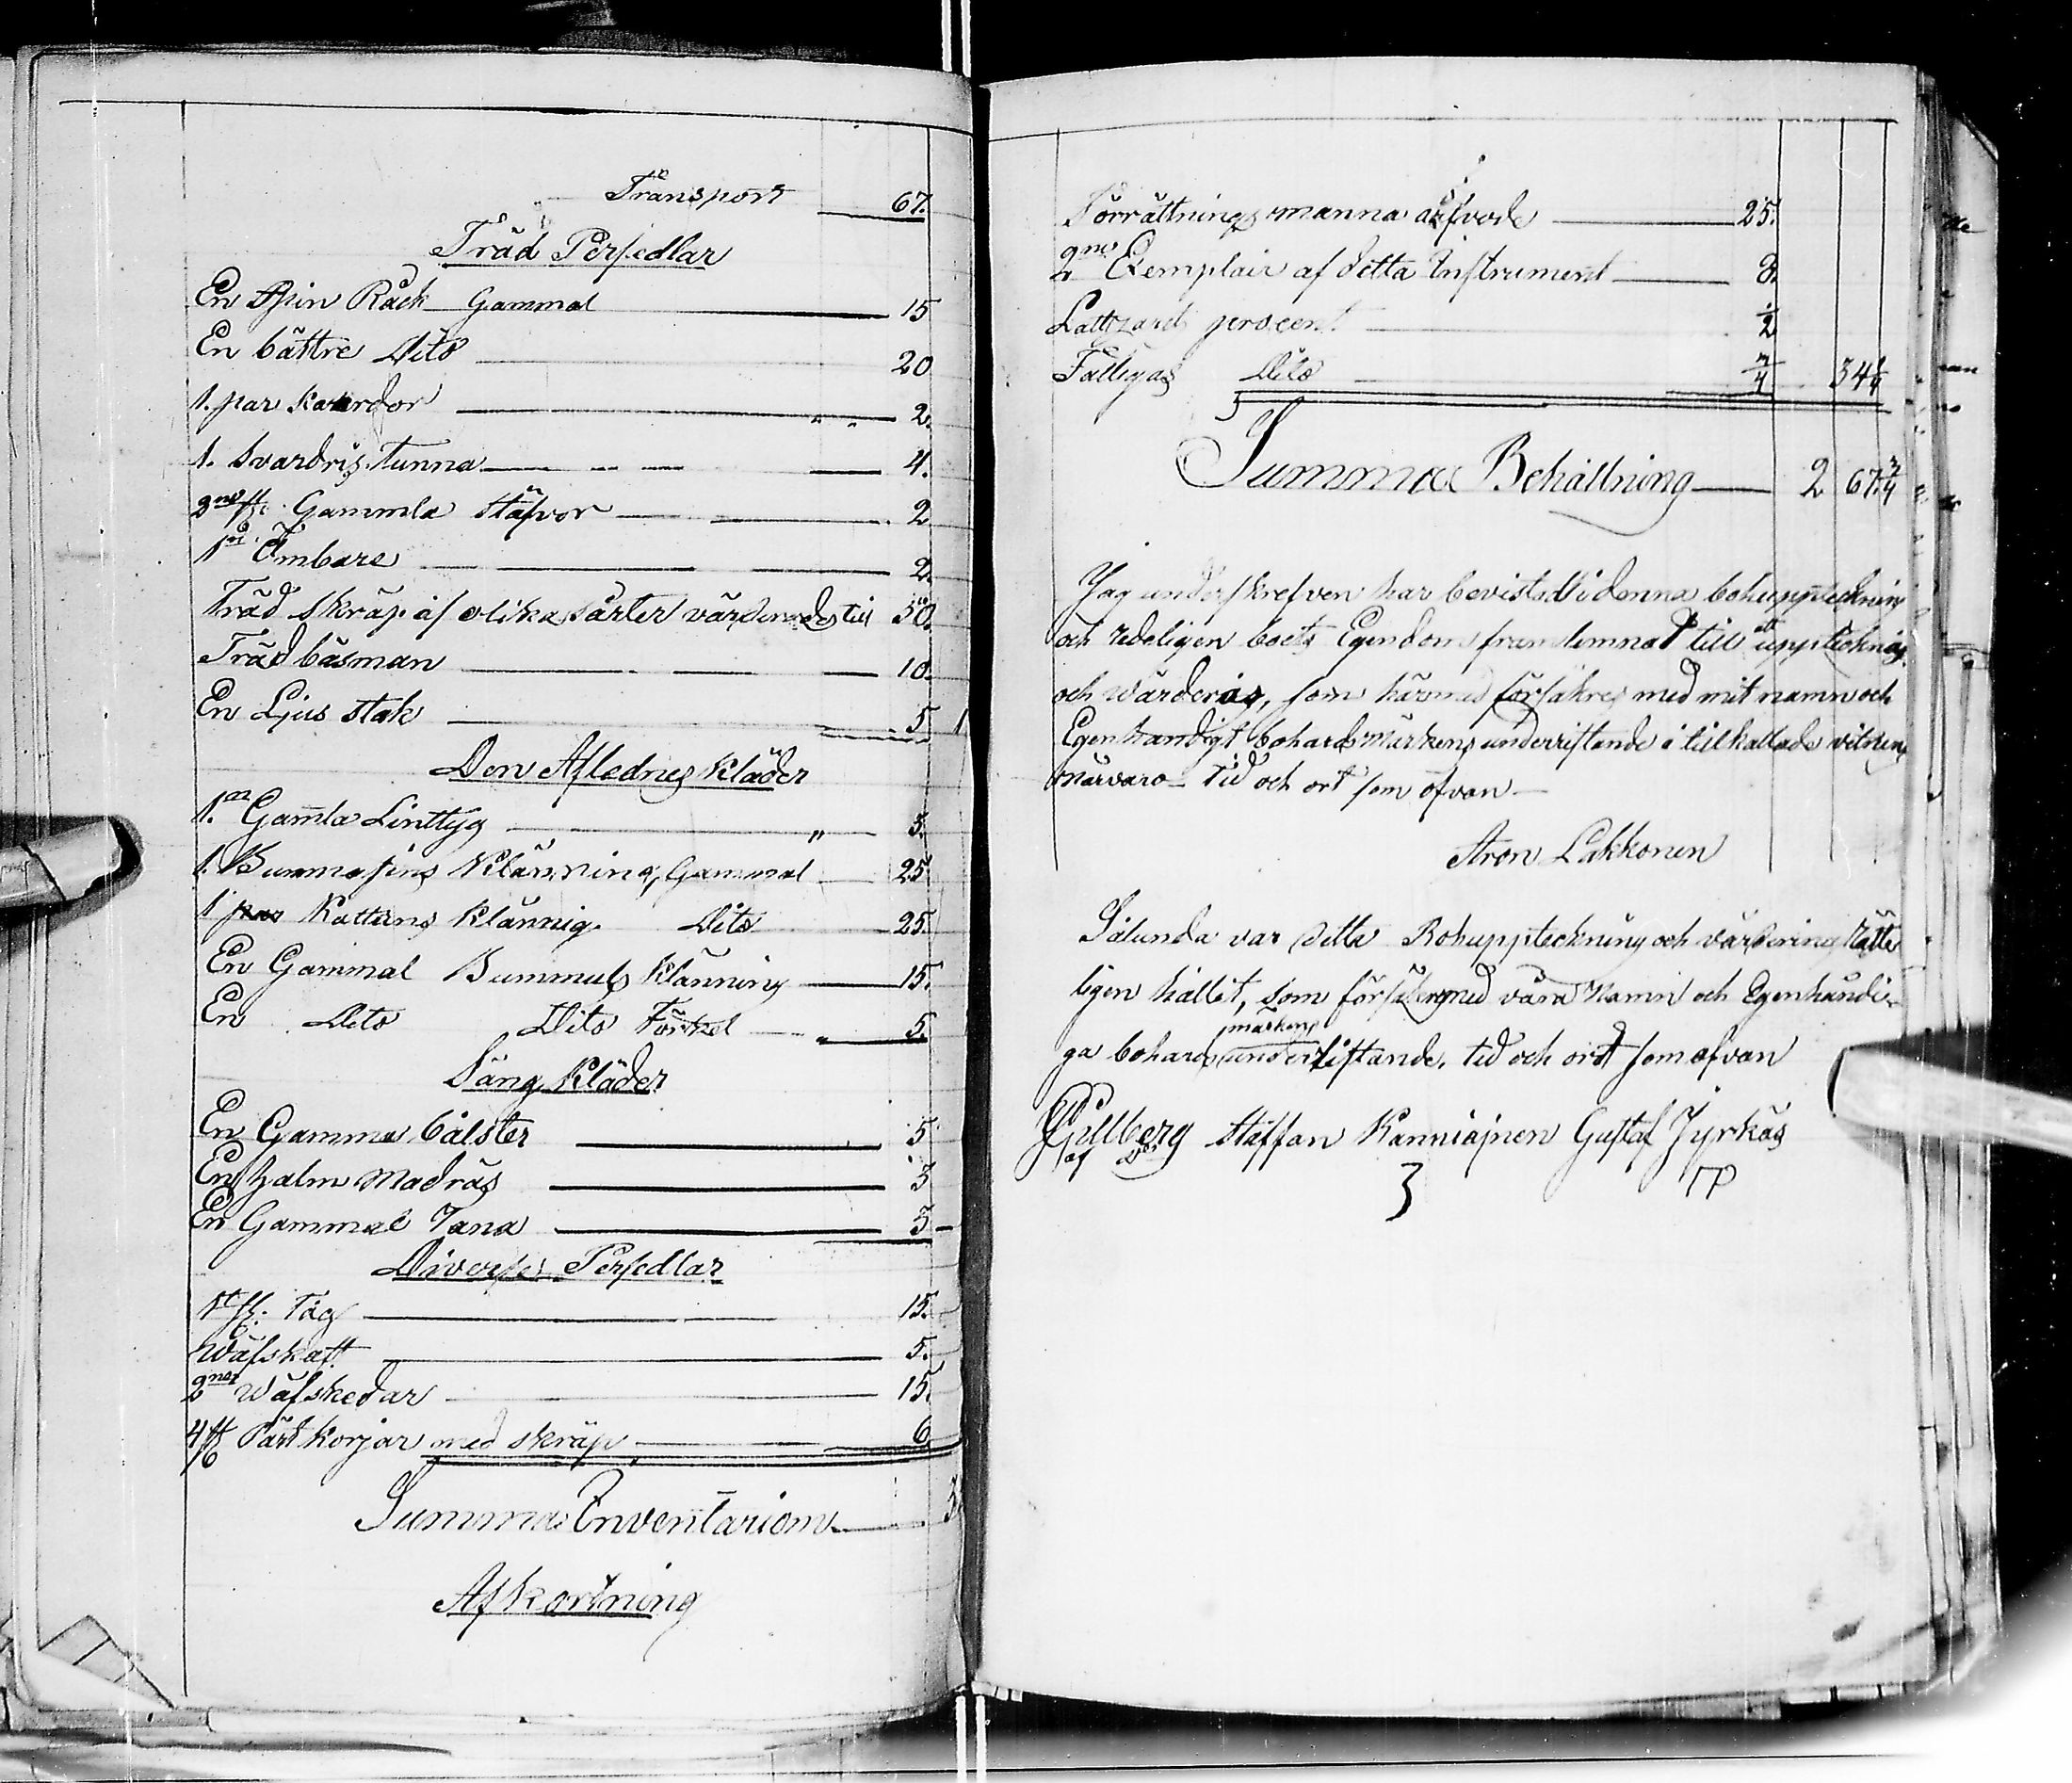 Transport 67.
Träd Persedlar
En Spin Råck Gammal 15
En båttre Dito 20
1. par kardor 2.
1. Svardris tunna 4.
2ne st: Gammla Stäfvor 2
1 Ömbare 2.
Träd Skräp af olika sårter värderades til 50.
Träd båsman 10.
En Ljus stak 5 1
Den Aflednes Kläder
1. Gamla Linttyg 3.
1. Bummasins Klänning, Gammal 25
1 Kattuns Klännig. Dito 25.
En Gammal Bummuls Klänning 15.
En Dito Dito Förkel 5.
Säng Kläder
En Gamma bålster 5
En halm Madras 3
En Gammal Tana 3
Diverse Persedlar
1 st: Tåg 15.
Wäfskaft 5.
2ne Wäfskedar 15.
4 st Pärt korjar med skräp 6
Summa Inventarium 3
Afkortning
Förrättnings manna arfvode 25.
2ne Exemplair af detta Instrument 8.
Lattzaret procent 1/2
Fattigas Dito 3/4 34 1/4
Summa Behållning 2 67 3/4
Jag underskrefven har bevistat vid denna bohuppteckning
och redeligen boets Egendom framlemnat till uppteckning
och wärdering, som härmed försäkres med mit namn och
Egenhandigt bohards märkens underristande i tilkallade vitnens
närvaro tid och ort som ofvan
Aron Lakkonen
Sålunda var detta Bohuppteckning och värdering Rätte
ligen hållit, som försäkres med våra Namn och Egenhändi-
ga bohards märkens underristande, tid och ort som ofvan
Gyllberg Staffan Kanniajnen Gustaf Jyrkäs
3